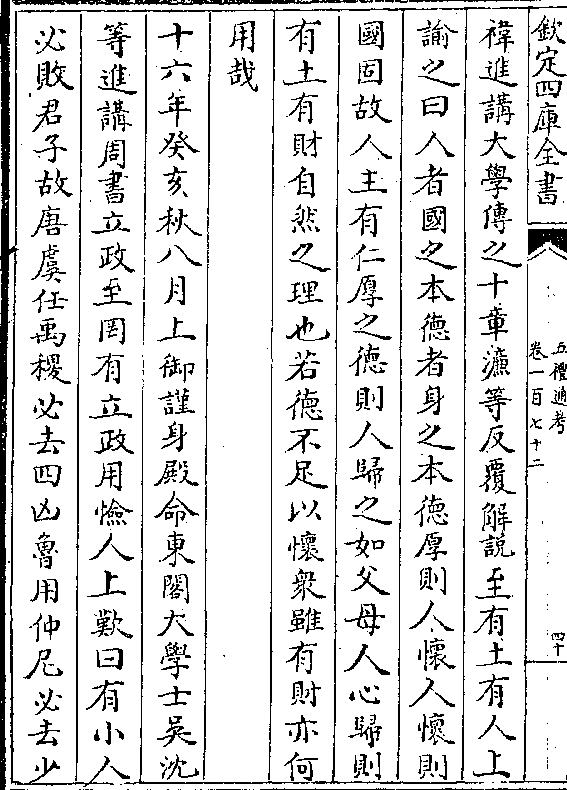 欽定四庫全書
五禮通考
卷一百七十二
四十
禕進講大學傳之十章濂等反覆解說至有土有人上
諭之曰人者國之本德者身之本德厚則人懷人懷則
國固故人主有仁厚之德則人歸之如父母人心歸則
有土有財自然之理也若德不足以懷衆雖有財亦何
用哉
十六年癸亥秋八月上御謹身殿命東閣大學士吳沈
等進講周書立政至罔有立政用憸人上歎曰有小人
必敗君子故唐虞任禹稷必去四凶魯用仲尼必去少